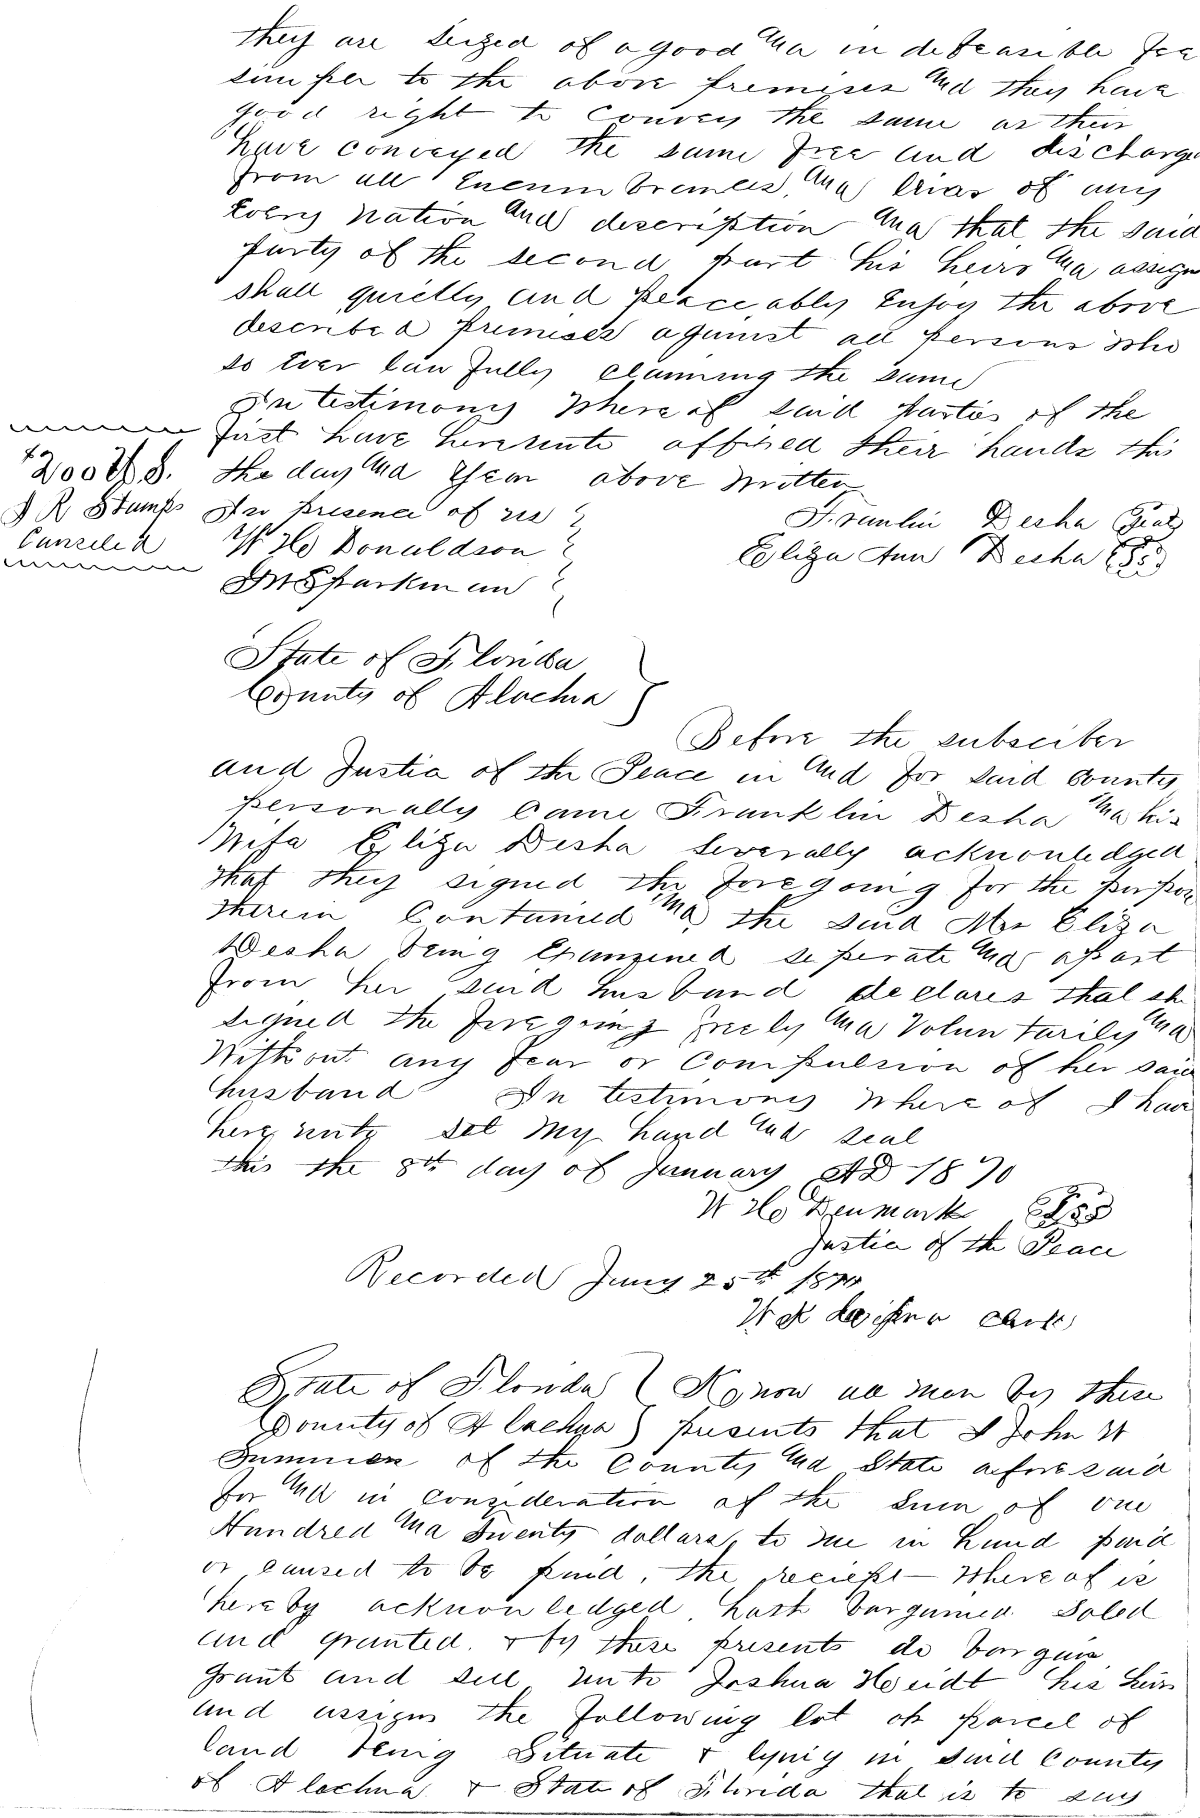 they are seized of a good and in defeasible fee
simpler to the above premises and they have
good right to convey the same as they
have conveyed the same free and discharge
from all Encumbrances, and of any
Every nation and description and that the said
party of the second part his heirs and assigns
shall quietly and peaceably Enjoy the above
described premises against all persons who
so Ever lawfully claiming the same
In testimony Where of said parties of the
first have hereunto affixed their hands this
the day and Year above written
$2.00 U.S.
I R Stamps
Canceled
In presence of us
W H Donaldson
J M Sparkman
Franlin Desha Seal
Eliza Ann Desha
State of Florida
County of Alachua
Before the subsciber
and Justice of the Peace in and for said County
personally Came Franklin Desha and his
Wife Eliza Desha Severally acknowledged
that they signed the foregoing for the purpose
therein Contained and the said Mrs Eliza
Desha being Examined seperate and apart
from her said husband declares that she
signed the foregoing freely and Voluntarily and
Without any fear or Compulsion of her said
husband In testimony Where of I have
here unto set my hand and seal
this the 8th day of January AD 1870
W H Denmark
Justice of the Peace
Recorded Jany 25th 1870
W K Clerk
State of Florida Know all men by these
County of Alachua presents that I John W
Summers of the County and State aforesaid
for and in Consideration of the Sum of one
Hundred and Twenty dollars, to me in hand paid
or caused to be paid, the reciept Where of is
here by acknowledged hath bargained Soled
and granted, & by these presents do bargain
grant and sell unto Joshua Heidt his heirs
and assigns the following lot or parcel of
land being Situate & lynig in said County
of Alachua & State of Florida that is to say